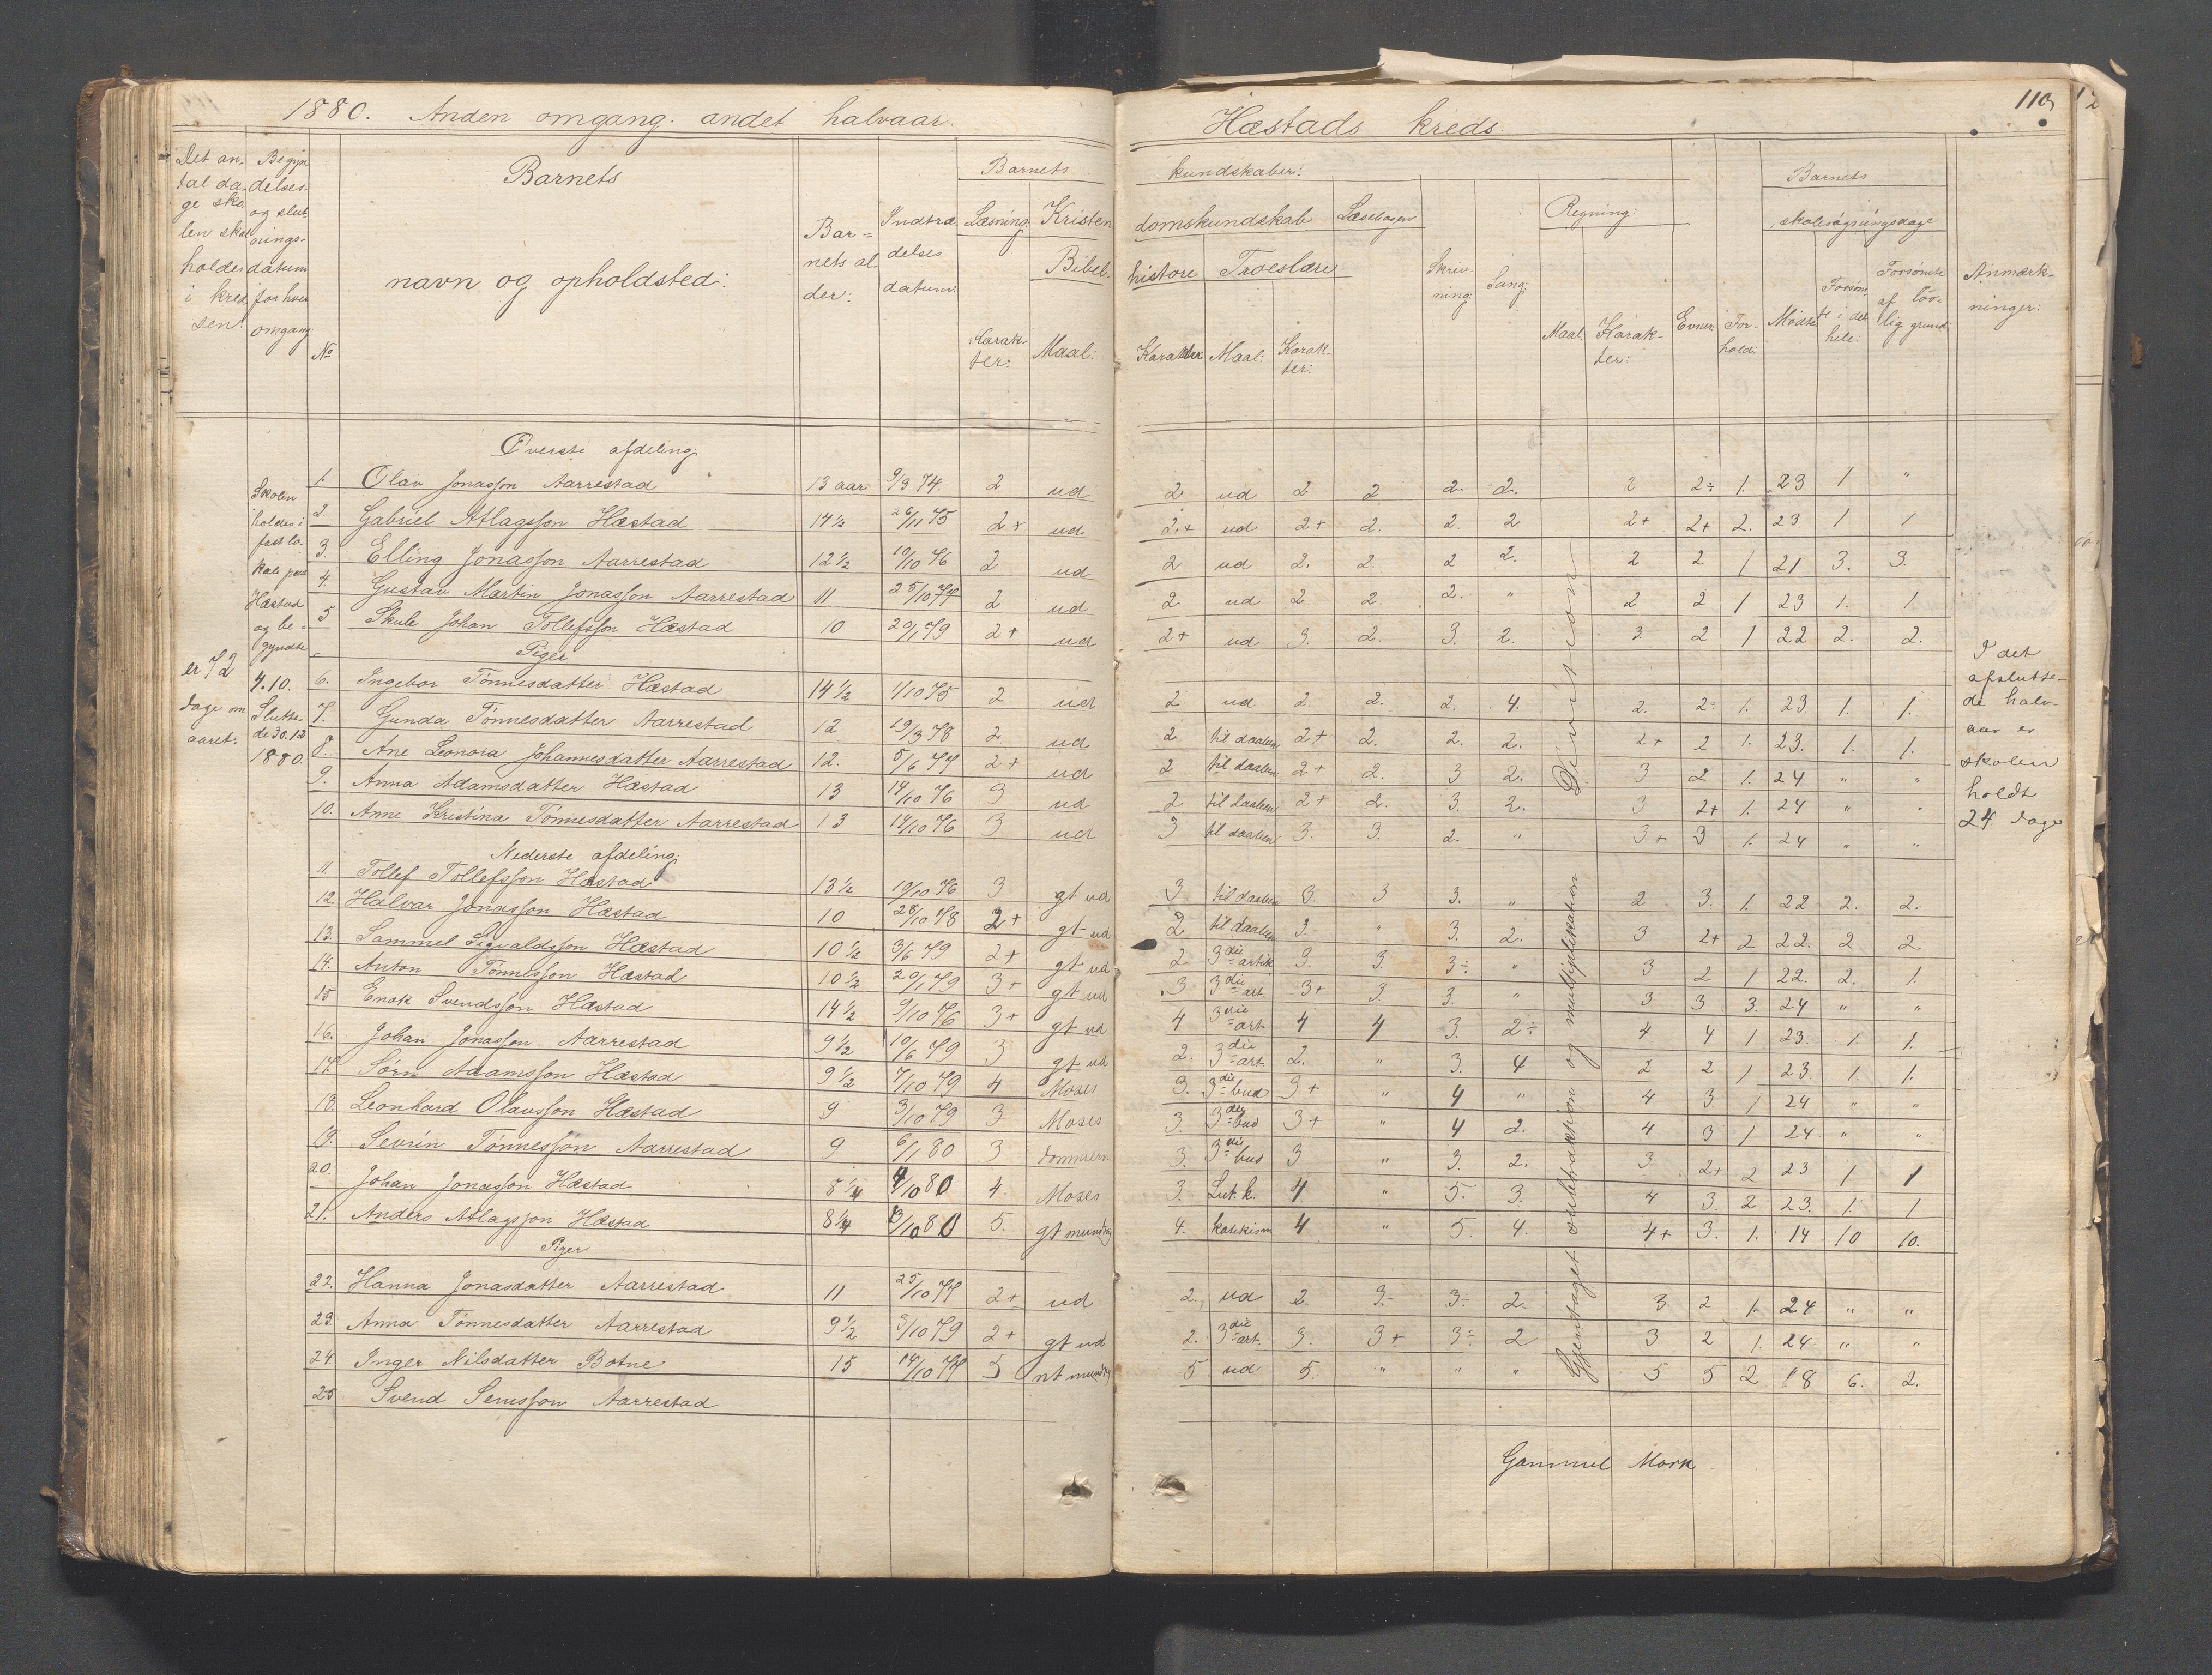 1880. Anden omgang. andet halvaar.
Hæstads kreds.
110
Det an-
tal da-
ge sko
len skal
holdes
i kred
sen:
Begyn
delses-
og slut
nings-
datum
for hver
omgang:
No
Barnets
navn og opholdsted:
Bar=
nets al
der:
Indtræ
delses
datum:
Barnets
Læsning:
Karak-
ter:
Kristen
Bibel.
Maal:
kundskaber:
domskundskab
histore
Karakter
Troeslære
Maal:
Karak-
ter:
Læsebogen
Skriv-
ning:
Sang:
Regning:
Maal:
Karak-
ter:
Evner
For-
hold:
Barnets
skolesøgningsdage
Mødte
Forsøm
te i det
hele:
Forsømte
af lov-
lig grund:
Anmærk-
ninger:
Øverste afdeling
1. Olav Jonasson Aarrestad 13 aar 9/3 74. 2 ud 2 ud 2 2 2. 2. 2 2÷ 1. 23 1 "
2 Gabriel Atlagsson Hæstad 14½ 26/11 75 2+ ud 2.+ ud 2+ 2. 2. 2 2+ 2+ 2. 23 1 1
3. Elling Jonasson Aarrestad 12½ 10/10 76 2 ud 2 ud 2. 2. 2 2. 2 2 1 21 3. 3.
4. Gustav Martin Jonasson Aarrestad 11 25/10 77 2 ud 2 ud 2. 2. 2. " 2 2 1 23 1. 1.
5 Skule Johan Tollefsson Hæstad 10 20/1 79 2+ ud 2+ ud 3. 2. 3. 2. 3 2 1 22 2. 2.
Piger
6. Ingebor Tönnesdatter Hæstad 14½ 1/10 75 2 ud 2 ud 2. 2. 2. 4. 2. 2÷ 1. 23. 1. 1.
7. Gunda Tönnesdatter Aarrestad 12 19/3 78 2 ud 2 til daaben 2+ 2. 2. 2. 2+ 2 1. 23. 1. 1.
8. Ane Leonora Johannesdatter Aarrestad 12. 5/6 77 2+ ud 2 til daaben 2+ 2. 3 2. 3 2 1. 24 " "
9. Anna Adamsdatter Hæstad 13 14/10 76 3 ud 2 til daaben 2+ 2. 3. 2. 3 2+ 1. 24 " "
10. Anne Kristina Tönnesdatter Aarrestad 13 14/10 76 3 ud 3 til daaben 3. 3. 2. " 3+ 3 1. 24 " "
Nederste afdeling
11. Tollef Tollefsson Hæstad 13½ 19/10 76 3 gt ud 3. til daaben 3. 3 3. " 2 3. 1. 22 2. 2.
12. Halvar Jonasson Hæstad 10 28/10 78 2+ gt ud 2 til daaben 3. " 3. 2. 3 2+ 2 22. 2 2
13. Sammel Sigvaldsson Hæstad 10½ 3/6 79 2+ gt ud 2. 3die artik 3 3. 3÷ " 3 2 1 22. 2. 1.
14. Anton Tönnesson Hæstad 10½ 20/1 79 3+ gt ud 3 3die art 3+ 3. 3. " 3 3 3. 24 " "
15 Enok Svendsson Hæstad 14½ 9/10 76 3+ gt ud 4 3die art 4 4 3. 2÷ 4 4 1 23. 1. 1.
16. Johan Jonasson Aarrestad 9½ 10/6 79 3 gt ud 2. 3die art 2. " 3. 4 2 2 1 23. 1. 1.
17. Sörn Adamsson Hæstad 9½ 7/10 79 4 Moses 3. 3die bud 3+ " 4 " 4 3. 1 24 " "
18. Leonhard Olausson Hæstad 9 3/10 79 3 Moses 3. 3die bud 3+ " 4 2. 4 3 1 24 " "
19. Sevrin Tönnesson Aarrestad 9 6/1 80 3 dommern 3. 3die bud 3 " 3. 2. 3 2+ 2 23 1. 1
20. Johan Jonasson Hæstad 8¼ 4/10 80 4. Moses 3. Lut. k. 4 " 5. 3. 4 3. 2 23. 1. 1
21. Anders Atlagsson Hæstad 8¼ 8/10 80 5. gt mundlig 4. katekism 4 " 5 4. 4+ 3. 1. 14 10 10.
Piger
22. Hanna Jonasdatter Aarrestad 11 25/10 77 2+ ud 2. ud 2. 3- 3÷ 2. 3 2 1. 24 " "
23. Anna Tönnesdatter Aarrestad 9½ 3/10 79 2+ gt ud 2. 3die art. 3. 3+ 3÷ 2 3 2 1. 24 " "
24. Inger Nilsdatter Botne 15 14/10 77 5 nt mundlig 5 ud 5. " " " 5 5 2 18 6. 2.
25 Svend Aarrestad
Skolen
holdes i
fast lo-
kale paa
Hæstad
og be-
gyndte
4.10.
Slutte-
de 30.12
1880.
er 72
dage om
aaret.
Division
Gjentaget subtraktion og multiplikation
I det
afslutte-
de halv-
aar er
skolen
holdt
24 dage
Gammel Mork